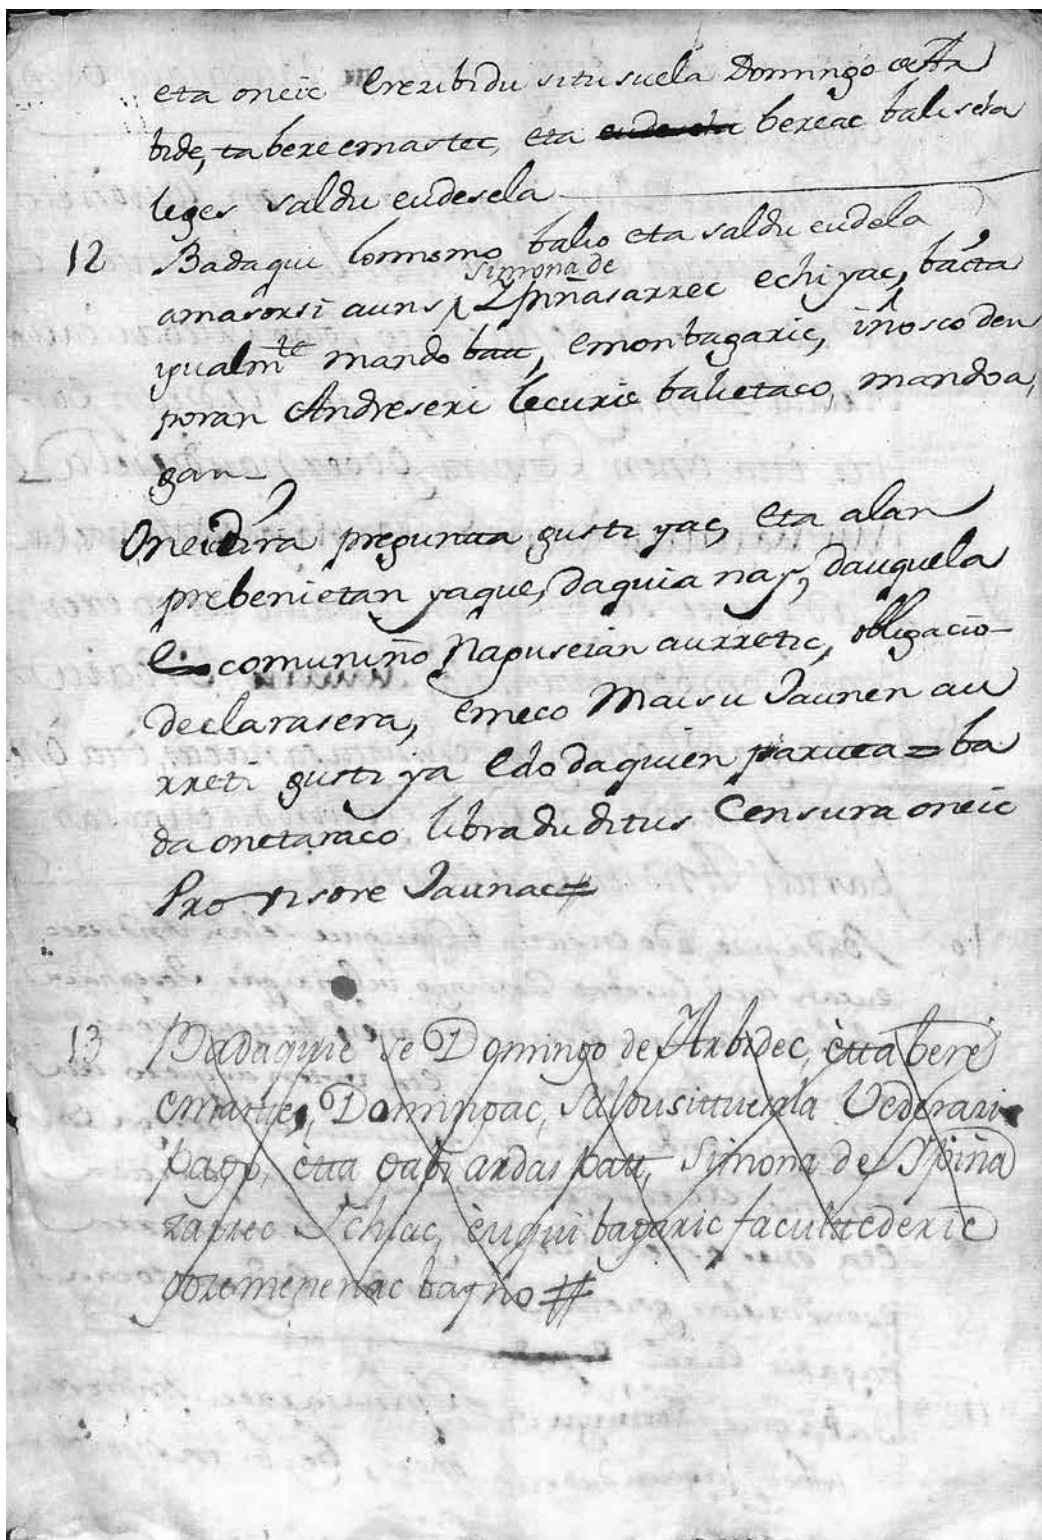 eta oneic Crezibidu situsuela Domingo de Ar
bide, ta bere emastec, eta eudesela bereac balis ela
leges saldu eudesela
12 Badaqui lormomo balio eta saldu eudela
amasorsi auns, simona de Ypiñasarrec echi yac, bat ta
ygualmte mando bat, emon bagaric, iñosco den
poran Andreseri lecuric balietaco, mandoa,
gan
Oneic dira pregunta gusti yac, eta alan
prebenietan yaque, daquia nay, dauquela
Escomuniño Napuseian aurretic, obligacio
declarasera, emeco Maisu Jaunen au
rreti gusti ya Edo daquien partea = ba
da onetaraco libradu ditus Censura oneic
Provisore Jaunac =
13 Badaquie se Domingo de Arbidec, etta bere
emastiec, Domingoac, saldu sittuesala Vederazi
pago, etta gabi ardas batt, Simona de Ypiña
zarrec Ychiac, euqui bagaric facultederic
gore menenac bagño #